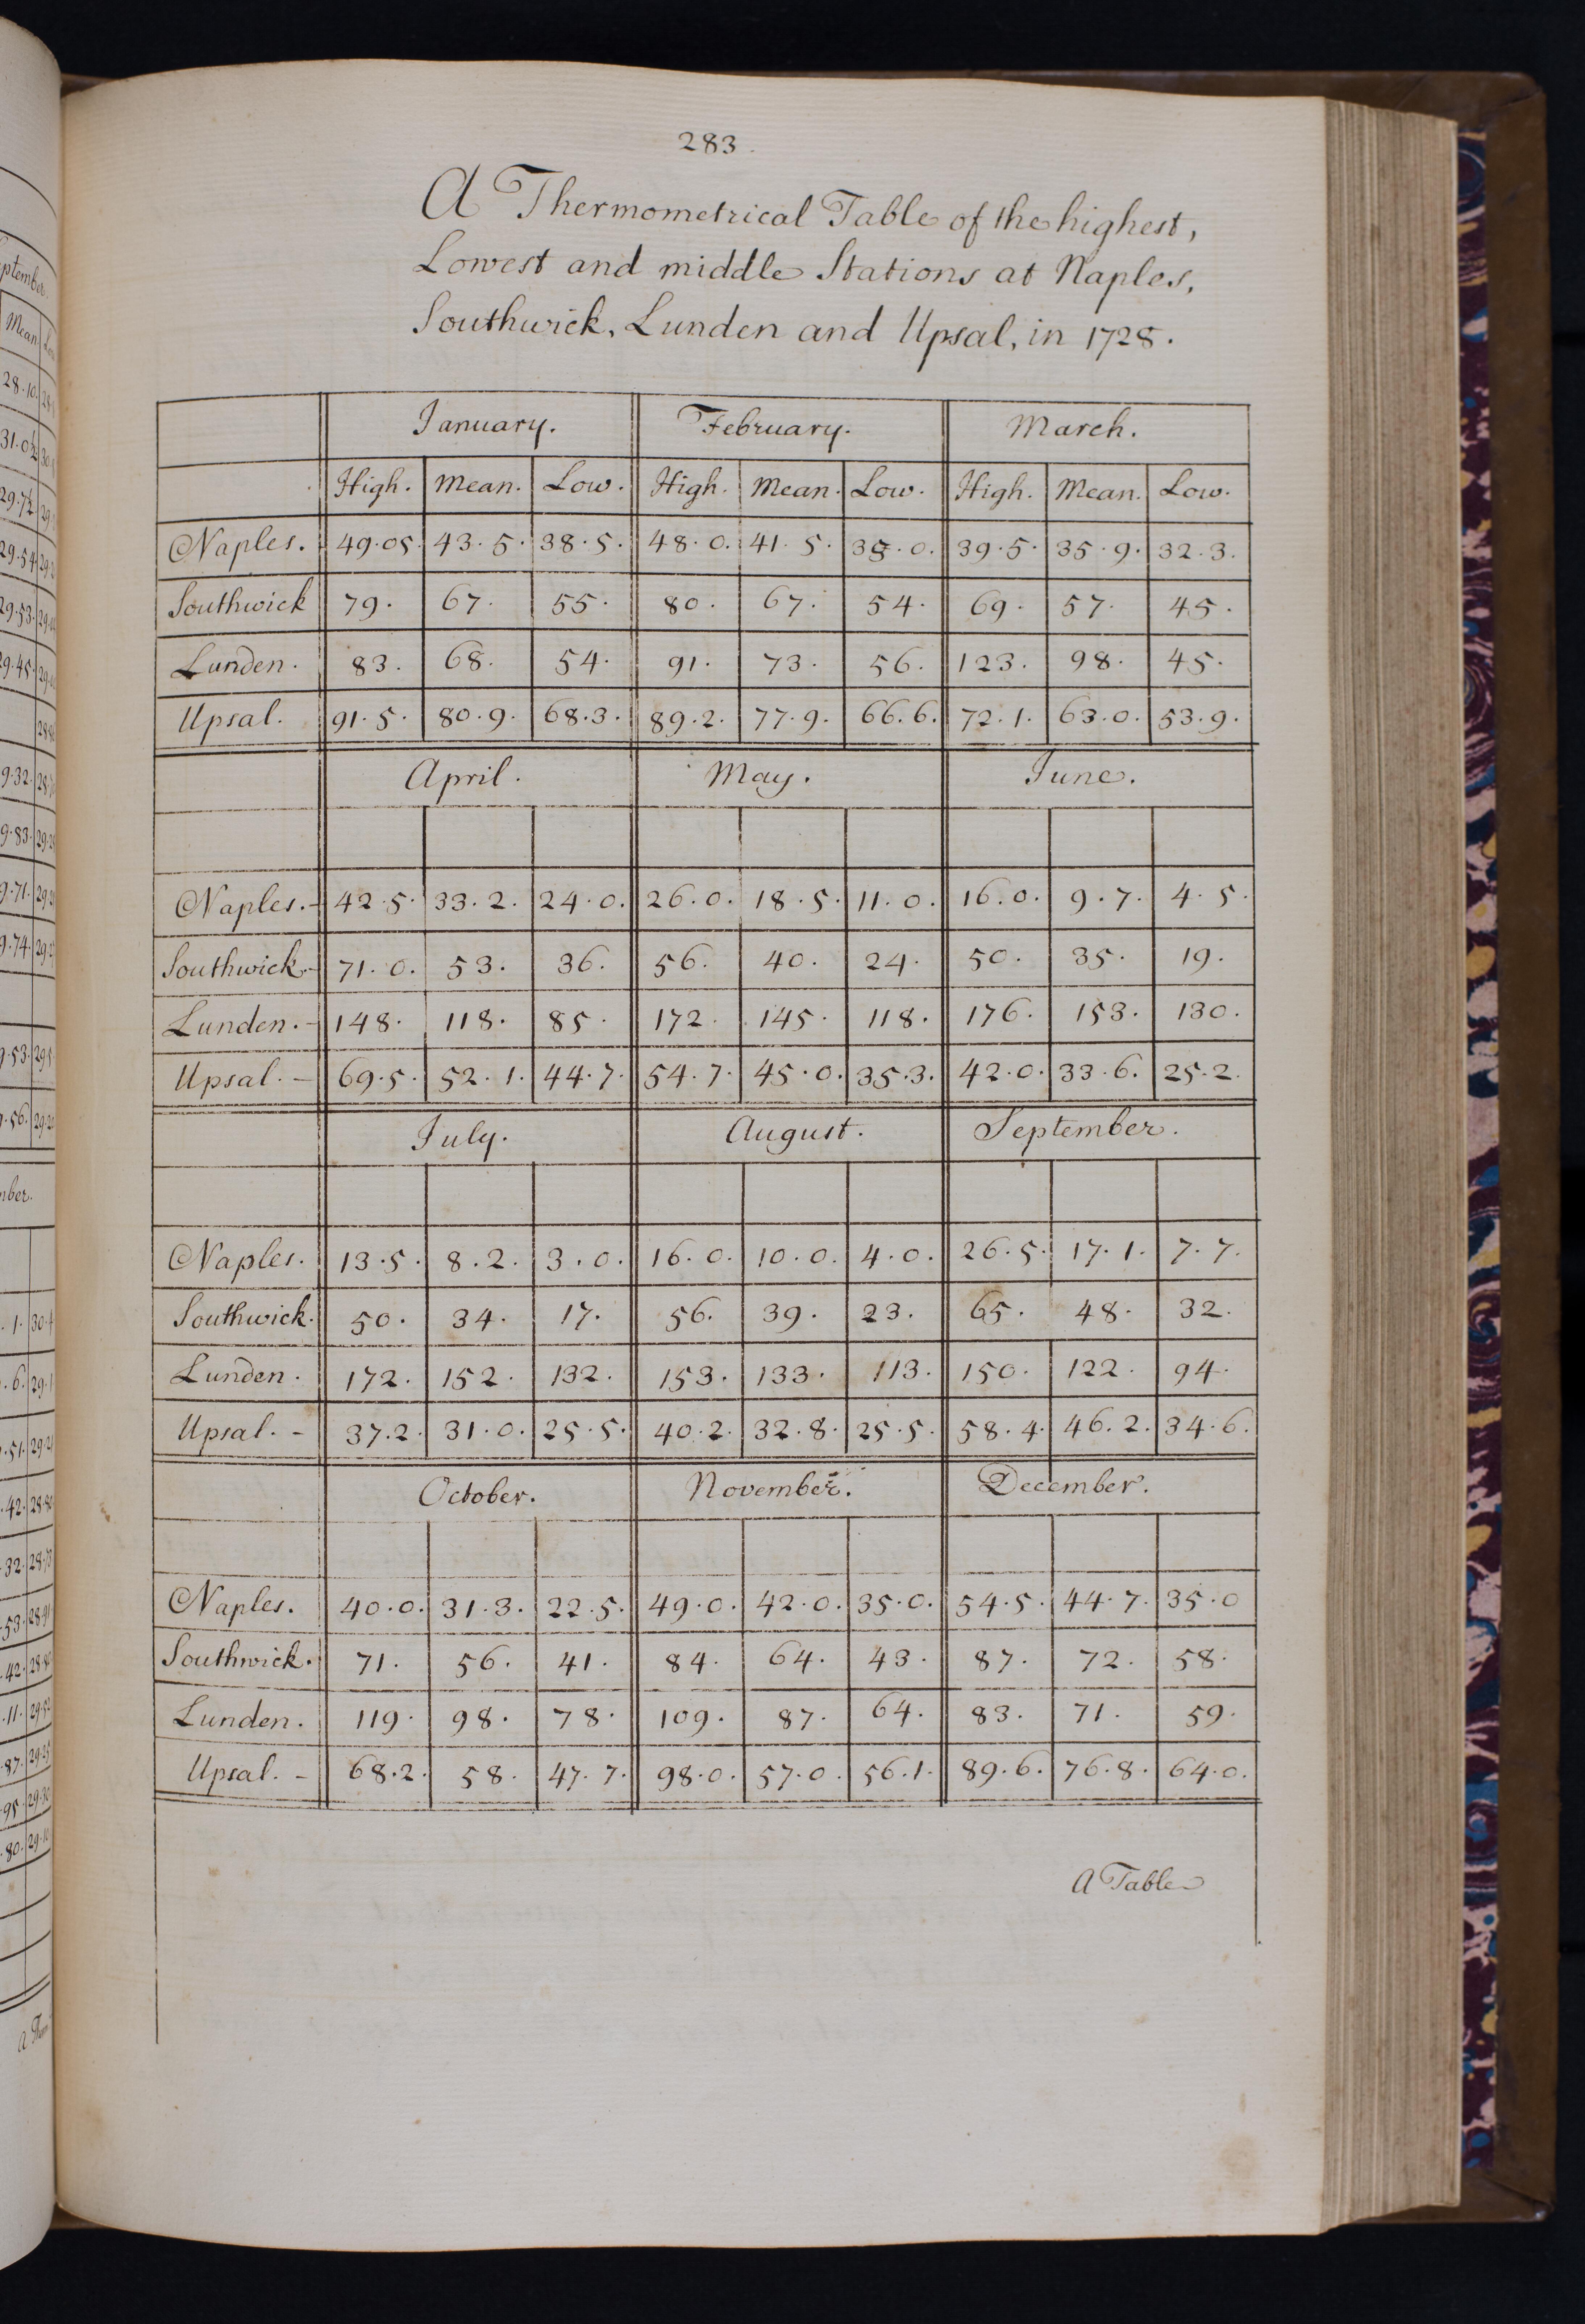 283.
A Thermometrical Table of the highest,
Lowest and middle Stations at Naples,
Southwick, Lunden and Upsal, in 1728.
January. February. March.
High. Mean. Low. High. Mean. Low. High. Mean. Low.
Naples. 49.05. 43.5. 38.5. 48.0. 41.5. 35.0. 39.5. 35.9. 32.3.
Southwick 79. 67. 55. 80. 67. 54. 69. 57. 45.
Lunden. 83. 68. 54. 91. 73. 56. 123. 98. 45.
Upsal. 91.5. 80.9. 68.3. 89.2. 77.9. 66.6. 72.1. 63.0. 53.9.
April. May. June.
Naples.- 42.5. 33.2. 24.0. 26.0. 18.5. 11.0. 16.0. 9.7. 4.5.
Southwick- 71.0. 53. 36. 56. 40. 24. 50. 35. 19.
Lunden.- 148. 118. 85. 172. 145. 118. 176. 153. 130.
Upsal.- 69.5. 52.1. 44.7. 54.7. 45.0. 35.3. 42.0. 33.6. 25.2.
July. August. September.
Naples. 13.5. 8.2. 3.0. 16.0. 10.0. 4.0. 26.5. 17.1. 7.7.
Southwick. 50. 34. 17. 56. 39. 23. 65. 48. 32.
Lunden. 172. 152. 132. 153. 133. 113. 150. 122. 94.
Upsal.- 37.2. 31.0. 25.5. 40.2. 32.8. 25.5. 58.4. 46.2. 34.6.
October. November. December.
Naples. 40.0. 31.3. 22.5. 49.0. 42.0. 35.0. 54.5. 44.7. 35.0
Southwick. 71. 56. 41. 84. 64. 43. 87. 72. 58.
Lunden. 119. 98. 78. 109. 87. 64. 83. 71. 59.
Upsal.- 68.2. 58. 47.7. 98.0. 57.0. 56.1. 89.6. 76.8. 64.0.
A Table